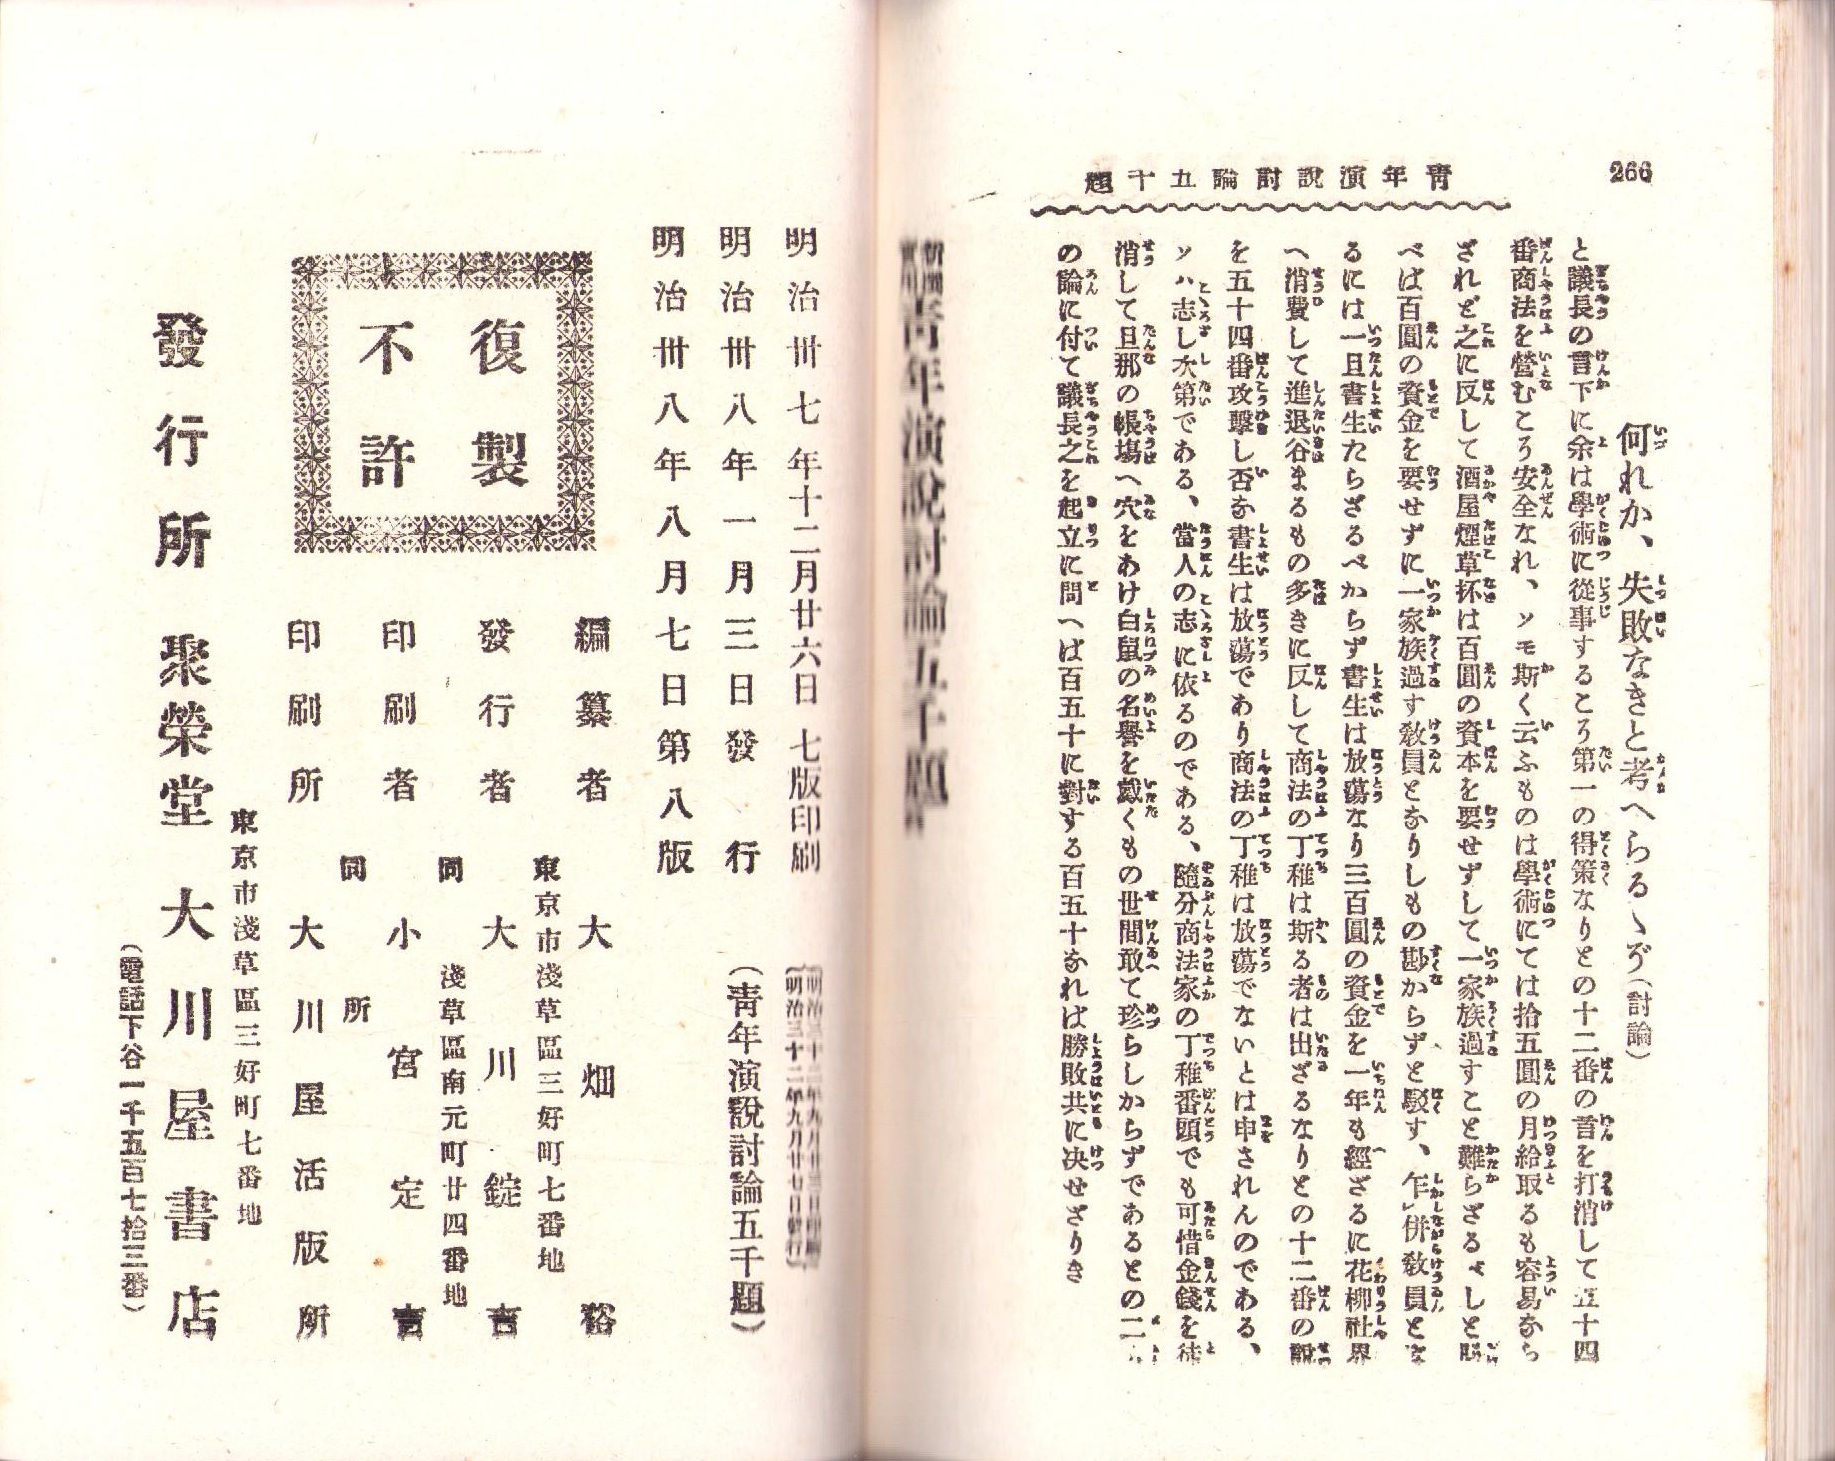 266
青年演說討論五十題
何れか、失敗なきと考へらるゝぞ(討論)
と議長の言下に余は學術に從事するころ第一の得策なりとの十二番の言を打消して五十四
番商法を營むころ安全なれ、ソモ斯く云ふものは學術にては拾五圓の月給取るも容易なら
ざれど之に反して酒屋煙草抔は百圓の資本を要せずして一家族過すこと難らざるべしと
べば百圓の資金を要せずに一家族過す敎員となりしもの尠からずと駁す、乍併敎員とな
るには一旦書生たらざるべからず書生は放蕩なり三百圓の資金を一年も經ざるに花柳社界
へ消費して進退谷まるもの多きに反して商法の丁稚は斯る者は出ざるなりとの十二番の說
を五十四番攻擊し否な書生は放蕩であり商法の丁稚は放蕩でないとは申されんのである、
ソハ志し次第である、當人の志に依るのである、隨分商法家の丁稚番頭でも可惜金錢を徒
消して旦那の帳場へ穴をあけ白鼠の名譽を戴くもの世間敢て珍らしからずであるとの二
の論に付て議長之を起立に問へば百五十に對する百五十なれば勝敗共に决せざりき
青年演說討論五十題
明治卅七年十二月廿六日七版印刷
明治卅八年一月三日發行
明治卅八年八月七日第八版
(明治三十二年九月廿三日印刷)
(明治三十二年九月廿七日發行)
(青年演說討論五千題)
復製
不許
編纂者 大畑裕
東京市淺草區三好町七番地
發行者 大川錠吉
同 淺草區南元町廿四番地
印刷者 小宮定吉
同 所
印刷所 大川屋活版所
東京市淺草區三好町七番地
發行所 聚榮堂 大川屋書店
(電話下谷一千五百七拾三番)